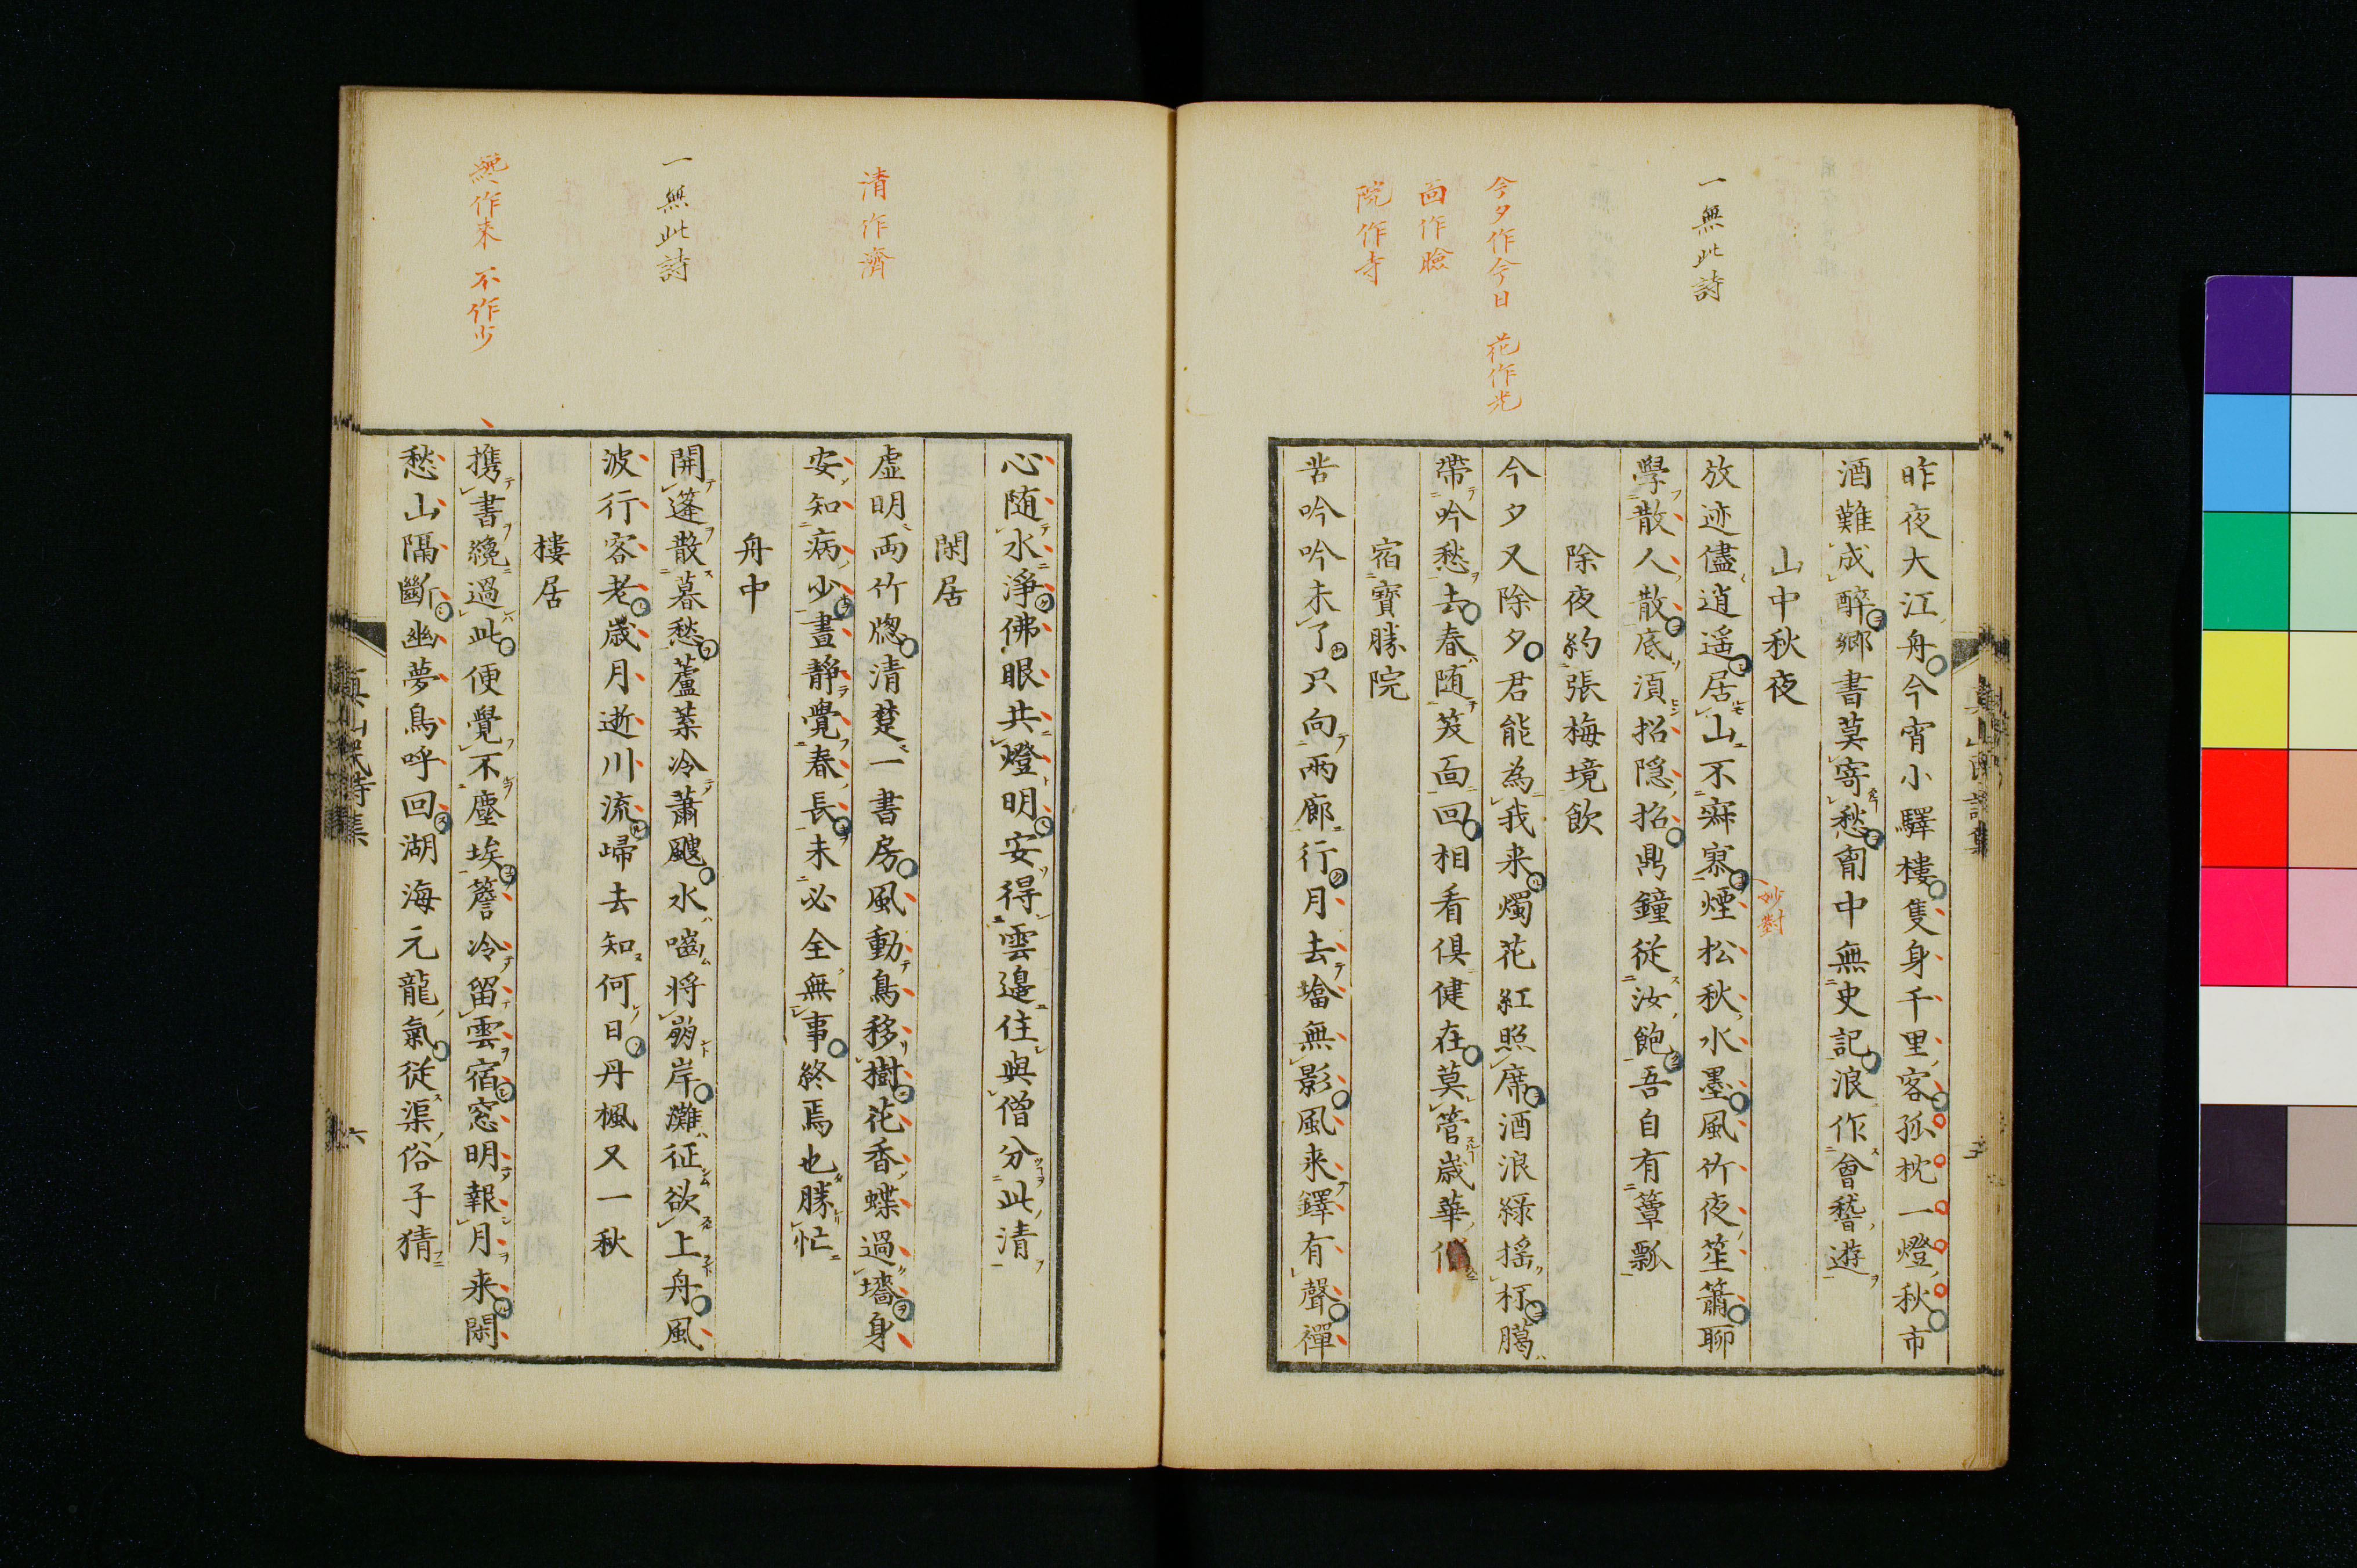 一無此詩
今夕作今日 花作光
面作臉
院作寺
昨夜大江舟今宵小驛樓隻身千里客孤枕一燈秋市
酒難成醉鄉書莫寄愁胷中無史記浪作會稽遊
山中秋夜
妙對
放迹儘逍遥居山不寂寥煙松秋水墨風竹夜笙簫聊
學散人散底湏招隠招鼎鐘従汝飽吾自有簞瓢
除夜約張梅境飲
今夕又除夕君能為我来燭花紅照席酒浪緑揺杯臈
帶吟愁去春随笑面回相看倶健在莫管歳華
宿寶勝院
苦吟吟未了只向兩廊行月去墖無影風来鐸有聲禪
清作濟
一無此詩
纔作來 不作少
心随水淨佛眼共燈明安得雲邉住與僧分此清
閑居
虚明両竹牕清楚一書房風動鳥移樹花香蝶過墻身
安知病少晝靜覺春長未必全無事終焉也勝忙
舟中
開篷散暮愁蘆葉冷蕭颼水嚙将崩岸灘征欲上舟風
波行客老歳月逝川流歸去知何日丹楓又一秋
樓居
携書纔過此便覺不塵埃簷冷留雲宿窓明報月来閑
愁山隔斷幽夢鳥呼回湖海元龍氣従渠俗子猜
真山民詩集
六